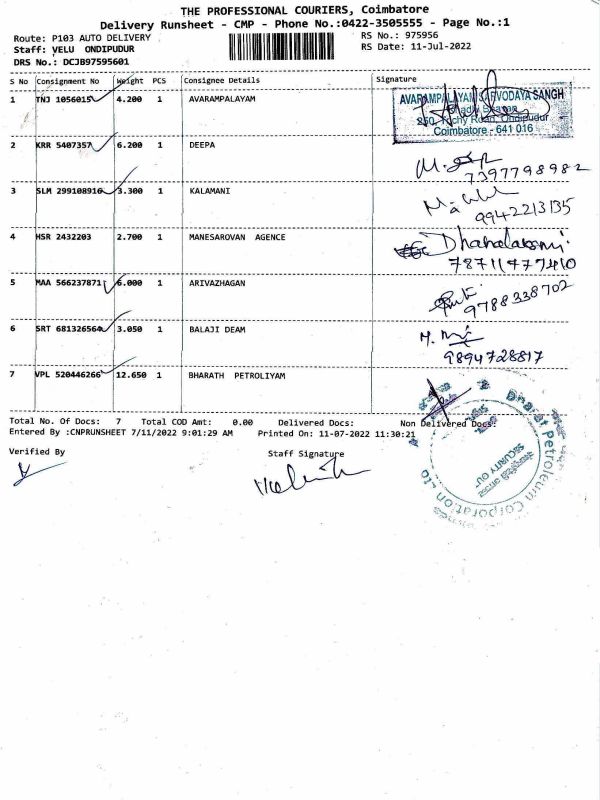 THE PROFESSIONAL COURIERS, Coimbatore
Delivery Runsheet - CMP - Phone No.:0422-3505555 - Page No.:1
Route: P103 AUTO DELIVERY
RS No.: 975956
Staff: VELU ONDIPUDUR
RS Date: 11-Jul-2022
DRS No.: DCJB97595601
S No Consignment No Weight PCS Consignee Details Signature
1 TNJ 1056015 4.200 1 AVARAMPALAYAM
AVARAMPALAYAM SARVODAYA SANGH
250, Trichy Road, Ondipudur
Coimbatore - 641 016
2 KRR 5407357 6.200 1 DEEPA
7397798982
3 SLM 299108916 3.300 1 KALAMANI
9942213135
4 HSR 2432203 2.700 1 MANESAROVAN AGENCE
Dhanalakshmi
78711477410
5 MAA 566237871 6.000 1 ARIVAZHAGAN
9788338702
6 SRT 68132656 3.050 1 BALAJI DEAM
9894728817
7 VPL 520446266 12.650 1 BHARATH PETROLIYAM
Bharat Petroleum Corporation Ltd
SECURITY OUT
Total No. Of Docs: 7 Total COD Amt: 0.00 Delivered Docs: Non Delivered Docs:
Entered By :CNPRUNSHEET 7/11/2022 9:01:29 AM Printed On: 11-07-2022 11:30:21
Verified By
Staff Signature